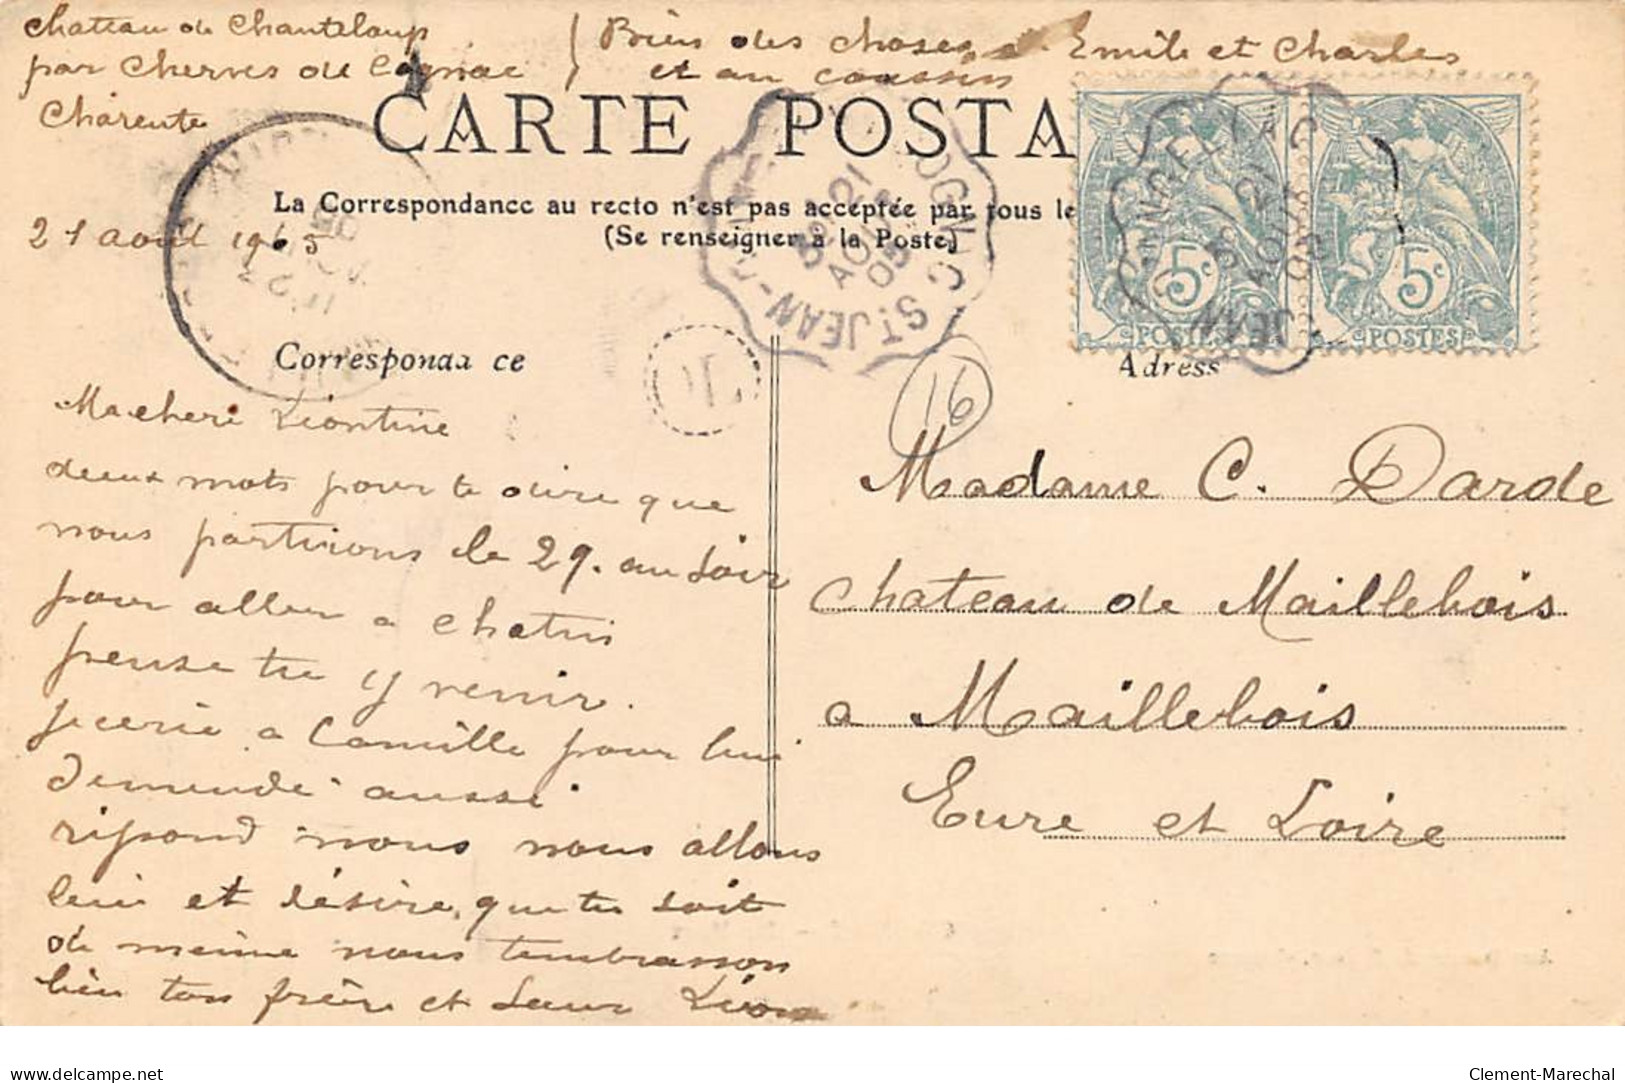 Chateau de Chanteloup
par Cherves de Cognac
Charente
Bien des choses a Emile et Charles
et au cousin
CARTE POSTA
La Correspondance au recto n'est pas acceptée par tous le
(Se renseigner à la Poste)
21 août 1905
ST JEAN-D'ANGÉLY
COGNAC
21
AOUT
05
5c
POSTES
5c
POSTES
Correspondance
Adress
16
Ma cheri Léontine
deux mots pour te dire que
nous partirons le 29. au soir
pour aller a Chatris
pense tu y venir.
jecerie a Camille pour lui
demende aussi
répond nous nous allons
bein et désire, que tu soit
de meme nous tembrasson
bien ton frère et Seur Léon
Madame C. Darde
Chateau de Maillebois
a Maillebois
Eure et Loire
Clement-Marechal